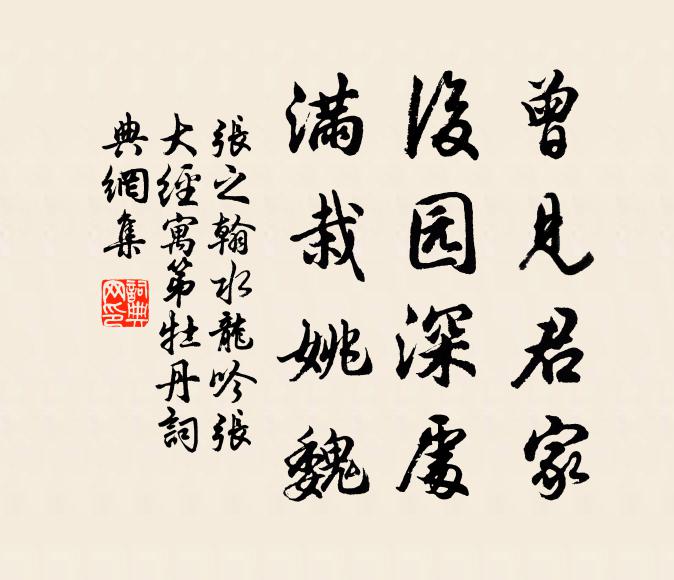 曾见君家
後园深處
满栽姚魏
張之翰水龍吟張
大經寓第牡丹詞
典網集
詞典網印